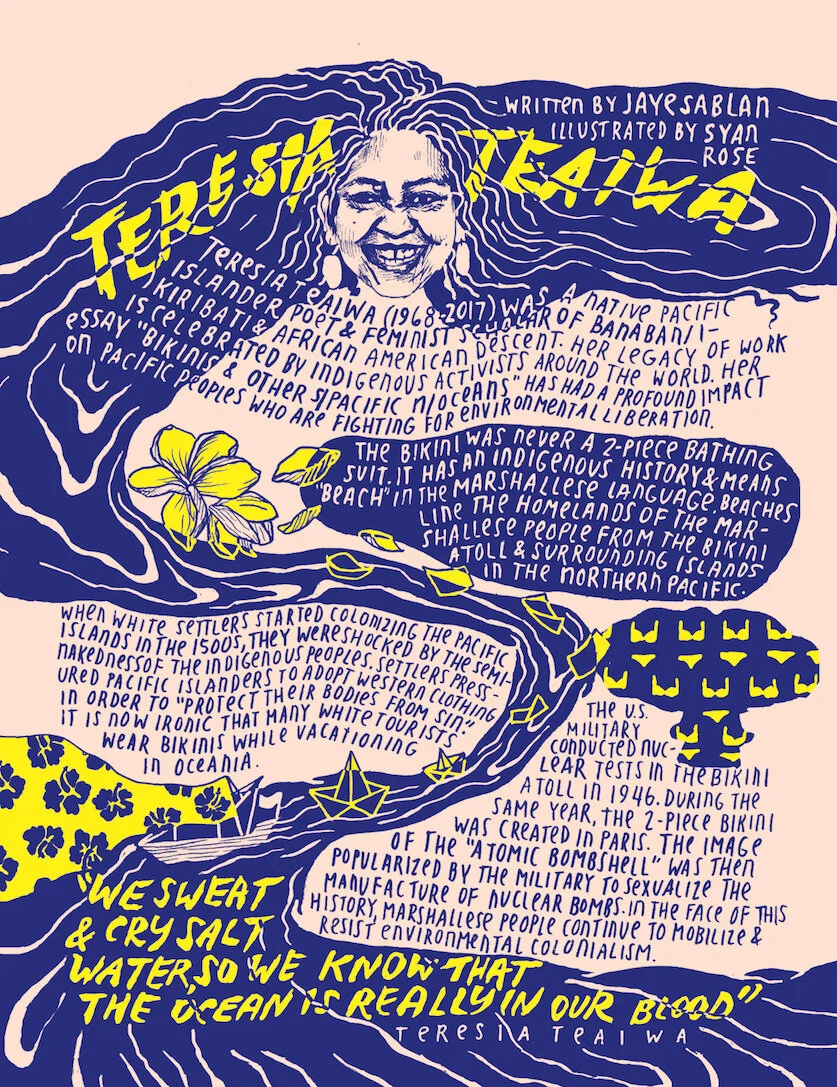 WRITTEN BY JAYE SABLAN
ILLUSTRATED BY SYAN
ROSE
TERESIA TEAIWA
TERESIA TEAIWA (1968-2017) WAS A NATIVE PACIFIC
ISLANDER POET & FEMINIST SCHOLAR OF BANABAN/I-
KIRIBATI & AFRICAN AMERICAN DESCENT. HER LEGACY OF WORK
IS CELEBRATED BY INDIGENOUS ACTIVISTS AROUND THE WORLD. HER
ESSAY "BIKINIS & OTHER S/PACIFIC N/OCEANS" HAS HAD A PROFOUND IMPACT
ON PACIFIC PEOPLES WHO ARE FIGHTING FOR ENVIRONMENTAL LIBERATION.
THE BIKINI WAS NEVER A 2-PIECE BATHING
SUIT. IT HAS AN INDIGENOUS HISTORY & MEANS
"BEACH" IN THE MARSHALLESE LANGUAGE. BEACHES
LINE THE HOMELANDS OF THE MAR-
SHALLESE PEOPLE FROM THE BIKINI
ATOLL & SURROUNDING ISLANDS
IN THE NORTHERN PACIFIC.
WHEN WHITE SETTLERS STARTED COLONIZING THE PACIFIC
ISLANDS IN THE 1500S, THEY WERE SHOCKED BY THE SEMI-
NAKEDNESS OF THE INDIGENOUS PEOPLES. SETTLERS PRESS-
URED PACIFIC ISLANDERS TO ADOPT WESTERN CLOTHING
IN ORDER TO "PROTECT THEIR BODIES FROM SIN."
IT IS NOW IRONIC THAT MANY WHITE TOURISTS
WEAR BIKINIS WHILE VACATIONING
IN OCEANIA.
THE U.S.
MILITARY
CONDUCTED NUC-
LEAR TESTS IN THE BIKINI
ATOLL IN 1946. DURING THE
SAME YEAR, THE 2-PIECE BIKINI
WAS CREATED IN PARIS. THE IMAGE
OF THE "ATOMIC BOMBSHELL" WAS THEN
POPULARIZED BY THE MILITARY TO SEXUALIZE THE
MANUFACTURE OF NUCLEAR BOMBS. IN THE FACE OF THIS
HISTORY, MARSHALLESE PEOPLE CONTINUE TO MOBILIZE &
RESIST ENVIRONMENTAL COLONIALISM.
"WE SWEAT
& CRY SALT
WATER, SO WE KNOW THAT
THE OCEAN IS REALLY IN OUR BLOOD"
TERESIA TEAIWA